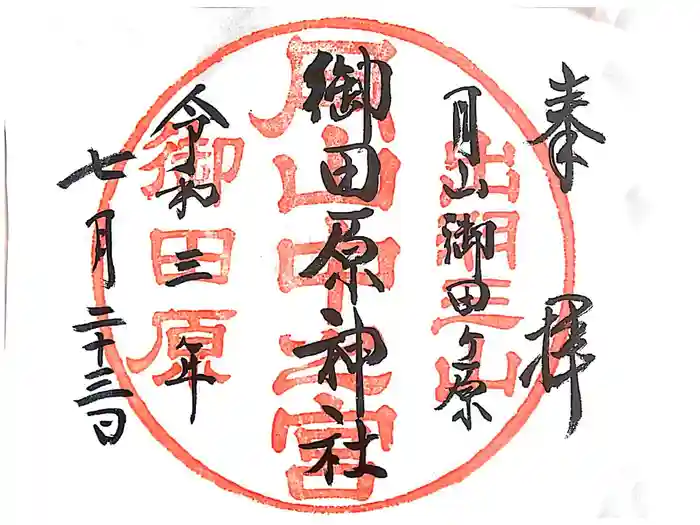 奉拝
月山御田ヶ原
御田原神社
令和三年
七月二十三日
出羽三山
月山中之宮
御田原